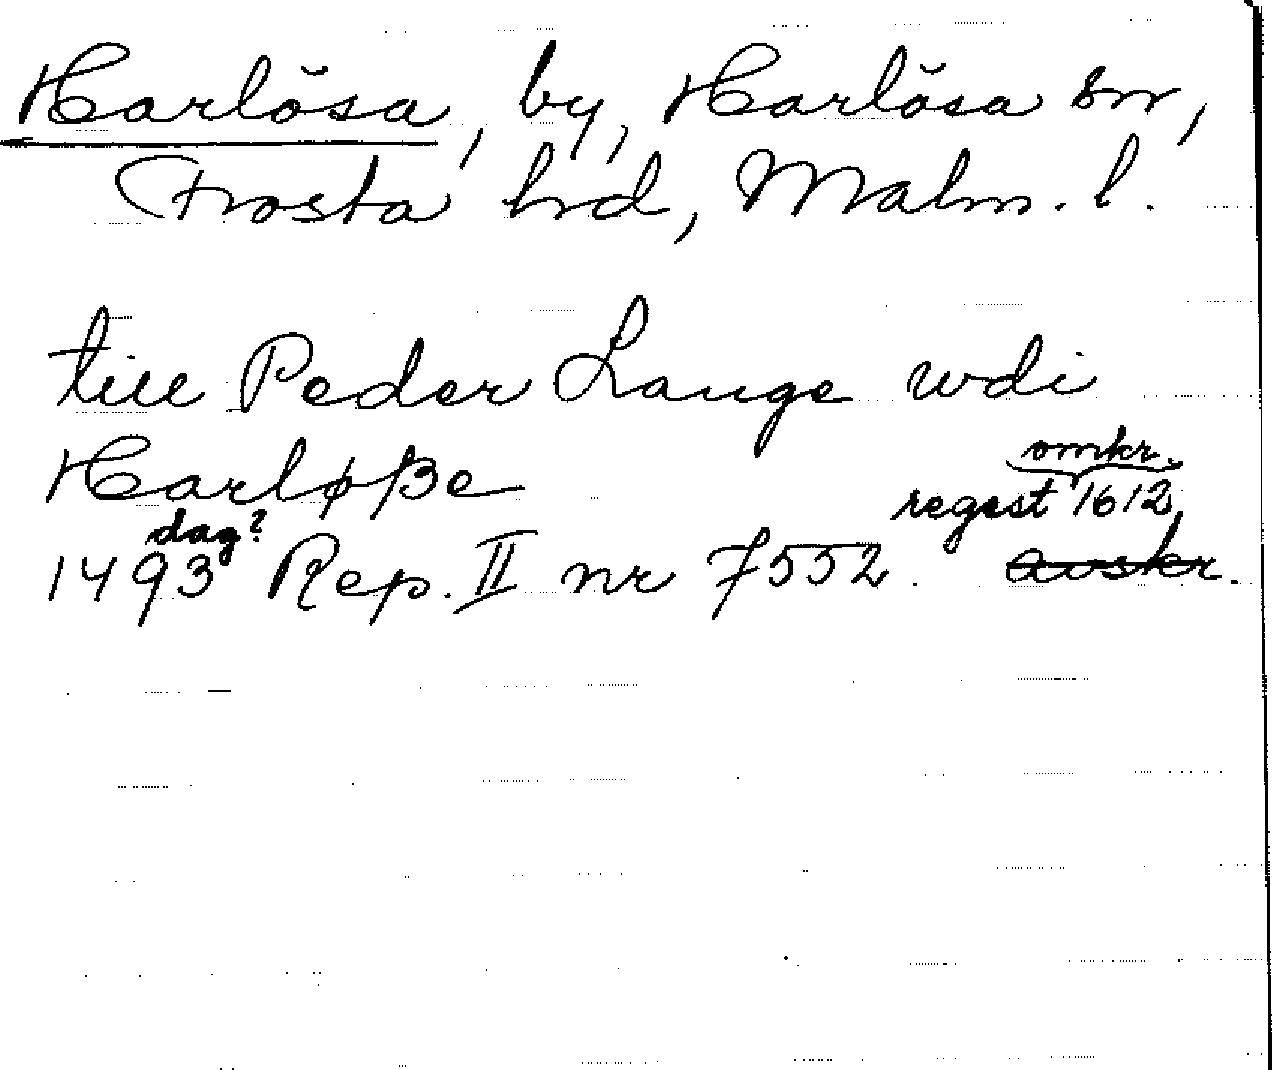 Harlösa, by, Harlösa sn,
Frosta hrd, Malm. l.
till Peder Lange wdi
Harløße
omkr.
regest 1612
dag?
1493 Rep. II nr 7552. avskr.